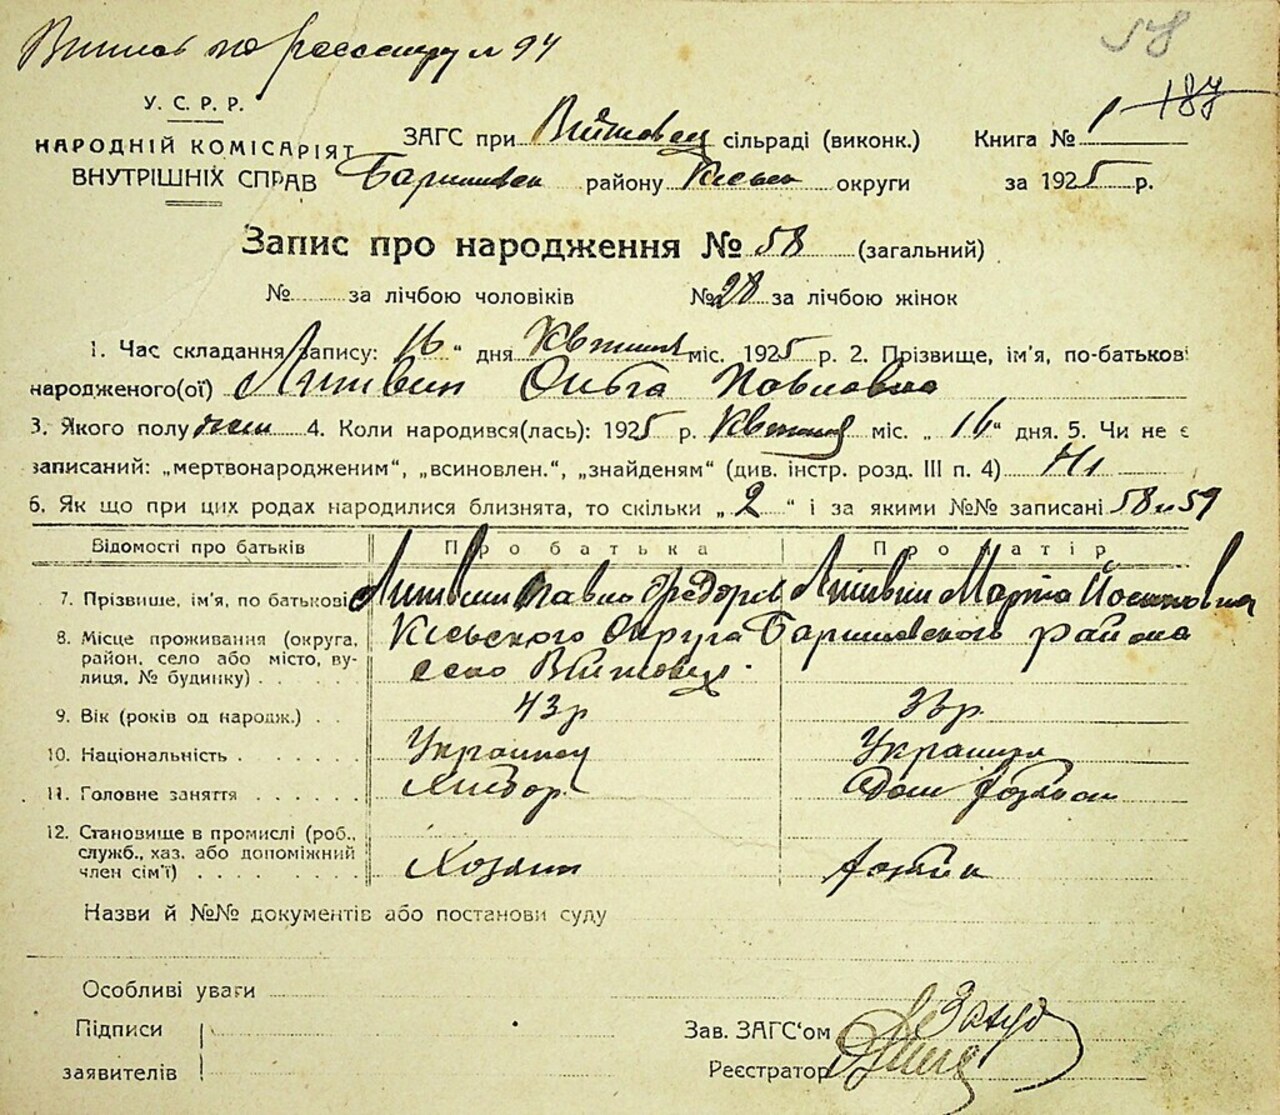 58
по № 94
187
У. С. Р. Р.
НАРОДНІЙ КОМІСАРІЯТ
ВНУТРІШНІХ СПРАВ
ЗАГС при Війтовец сільраді (виконк.) Книга № 1
Баришівск району Київськ округи за 1925 р.
Запис про народження № 58 (загальний)
№ за лічбою чоловіків № 28 за лічбою жінок
1. Час складання запису: 16 " дня Квітня міс. 1925 р. 2. Прізвище, ім'я, по-батькові
народженого(ої) Литвин Ольга Павловна
3. Якого полу жін 4. Коли народився(лась): 1925 р. Квітня міс. „ 16 " дня. 5. Чи не є
записаний: „мертвонародженим“, „всиновлен.“, „знайденям“ (див. інстр. розд. III п. 4) Ні
6. Як що при цих родах народилися близнята, то скільки „ 2 “ і за якими №№ записані 58 и 59
Відомості про батьків Про батька Про матір
7. Прізвище, ім'я, по батькові Литвин Павло Федоров Литвин Марта
8. Місце проживання (округа, район, село або місто, вулиця, № будинку) Округа Баришевского района
село Війтовці
9. Вік (років од народж.) 43 р р.
10. Національність Украинец Украинка
11. Головне заняття Хлібор Дом
12. Становище в промислі (роб., служб., хаз. або допоміжний член сім'ї) Хозяин
Назви й №№ документів або постанови суду
Особливі уваги
Підписи
заявителів
Зав. ЗАГС'ом
Реєстратор